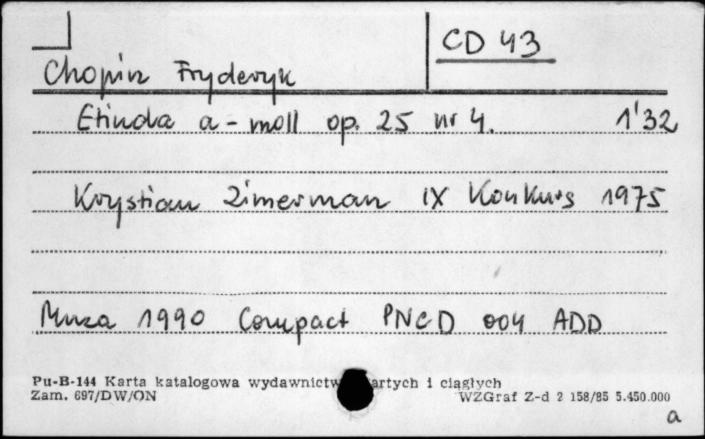 CD 43
Chopin Fryderyk
Etiuda a-moll op. 25 nr 4. 1'32
Krystian Zimerman IX Konkurs 1975
Muza 1990 Compact PNCD 004 ADD
Pu-B-144 Karta katalogowa wydawnictw artych i ciągłych
Zam. 697/DW/ON WZGraf Z-d 2 158/85 5.450.000
a